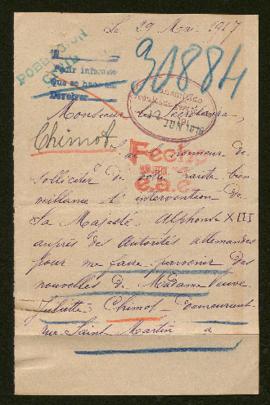 Le 29 Mai 1917
POBLACION
CIVIL
30884
Pedir informe
Monsieur le Secrétaire,
JUN 1917
Chimot
J'ai l'honneur de
Fecho
solliciter de votre haute bien
veillance l'intervention de
Sa Majesté Alphonse XIII
auprès des Autorités allemandes
pour me faire parvenir des
nouvelles de Madame Veuve
Juliette Chimot demeurant
rue Saint Martin à